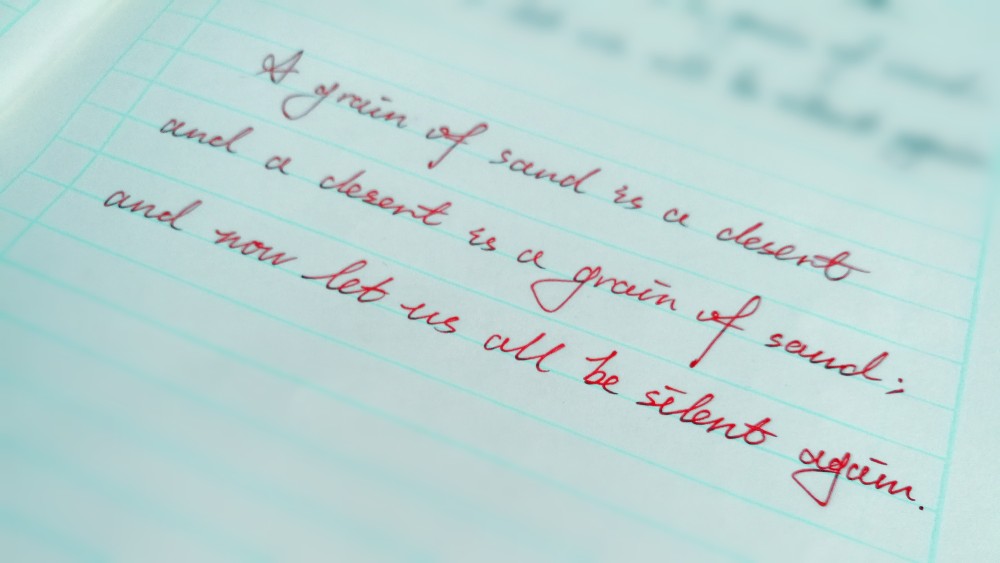 A grain of sand is a desert
and a desert is a grain of sand;
and now let us all be silent again.